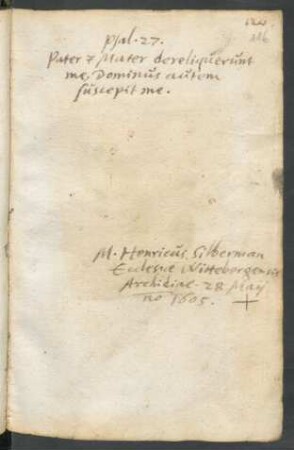 psal. 27.
Pater & Mater dereliquerunt
me, Dominus autem
suscepit me.
M. Henricus Silberman
Ecclesiæ Wittebergensis
Archidiac. 28 Maij
no 1605. +